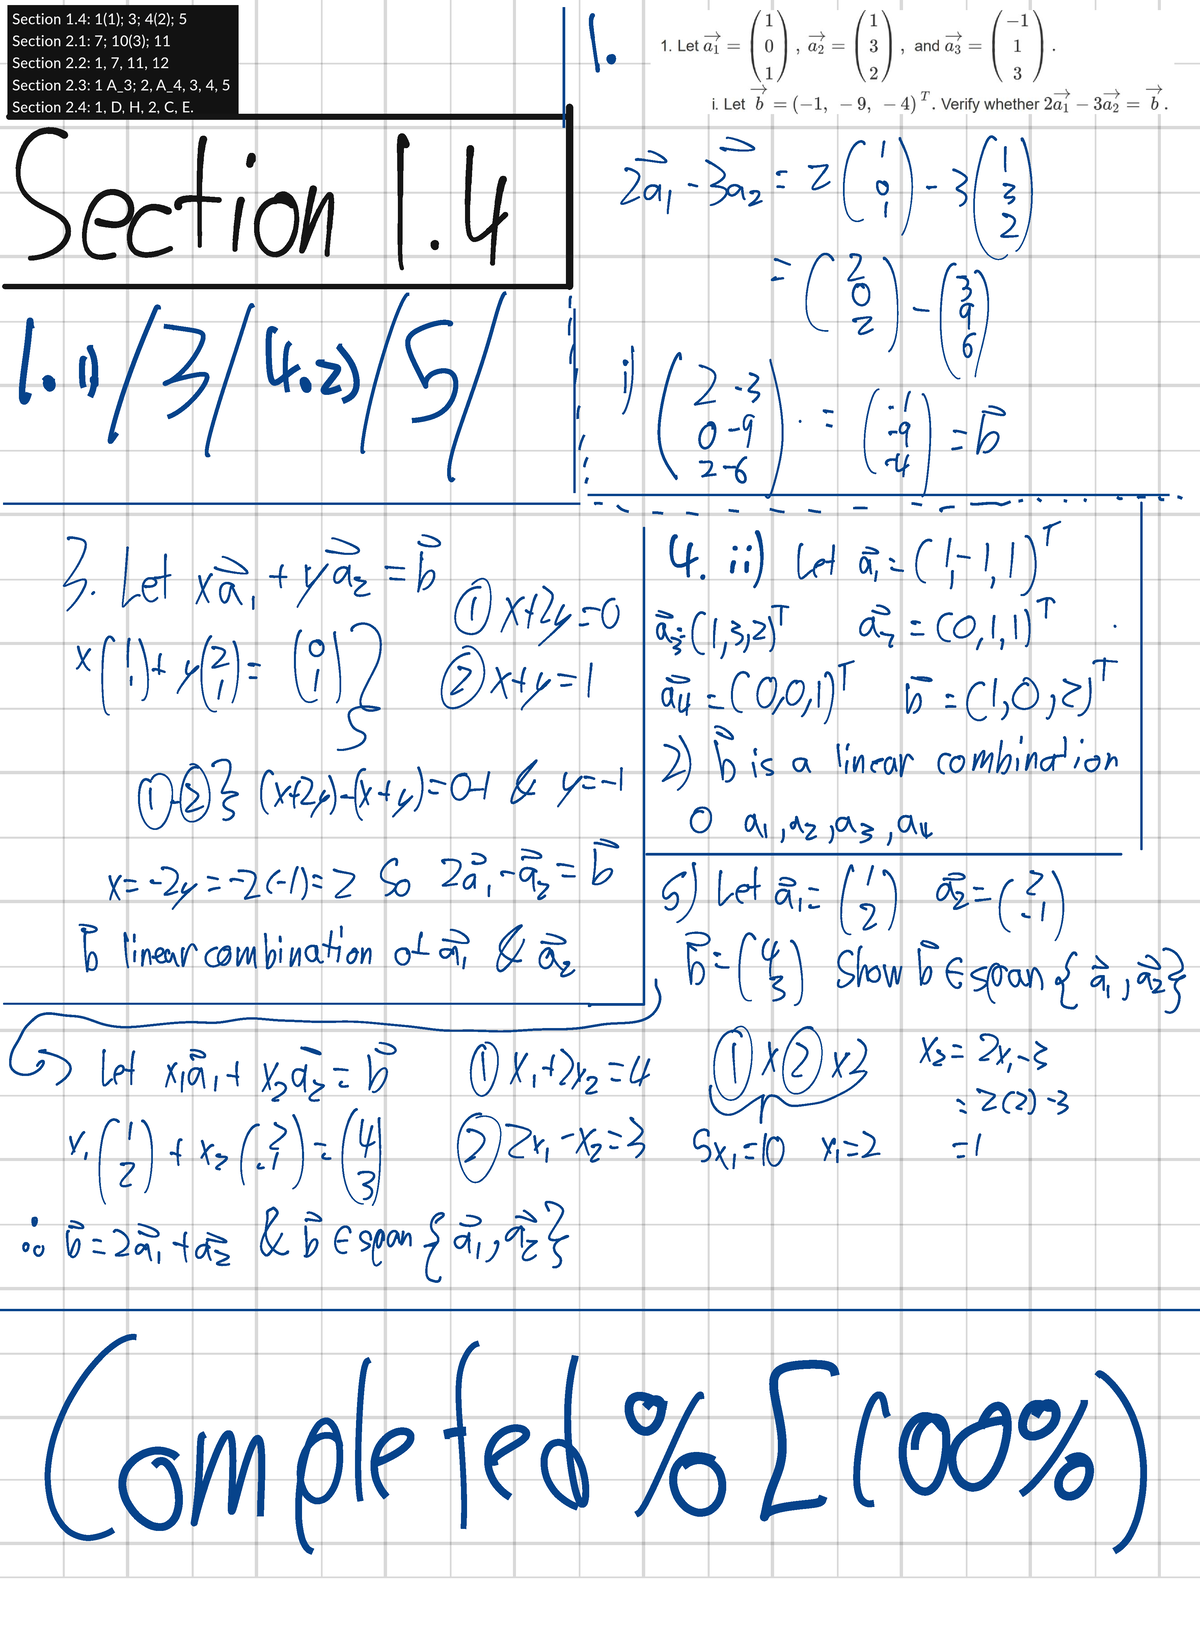 Section 1.4: 1(1); 3; 4(2); 5
Section 2.1: 7; 10(3); 11
Section 2.2: 1, 7, 11, 12
Section 2.3: 1 A_3; 2, A_4, 3, 4, 5
Section 2.4: 1, D, H, 2, C, E.
Section 1.4
1. 1) / 3 / 4.2) / 5 /
1.
1. Let a₁ = (1 0 1), a₂ = (1 3 2), and a₃ = (−1 1 3).
i. Let b = (−1, −9, −4)ᵀ. Verify whether 2a₁ − 3a₂ = b.
2a₁ - 3a₂ = 2 (1 0 1) - 3 (1 3 2)
= (2 0 2) - (3 9 6)
i) (2-3 0-9 2-6) . = (-1 -9 -4) = b
3. Let xa₁ + ya₂ = b
x(1 1) + y(2 1) = (0 1)
① x+2y=0
② x+y=1
①-② (x+2y)-(x+y)=0-1 & y=-1
x=-2y=-2(-1)=2 So 2a₁-a₂=b
b linear combination of a₁ & a₂
4. ii) Let a₁=(1,-1,1)ᵀ
a₃=(1,3,2)ᵀ a₂=(0,1,1)ᵀ
a₄=(0,0,1)ᵀ b=(1,0,2)ᵀ
2) b is a linear combination
o a₁, a₂, a₃, a₄
5) Let a₁=(1 2) a₂=(2 -1)
b=(4 3) Show b ∈ span{a₁, a₂}
Let x₁a₁+x₂a₂=b
x₁(1 2) + x₂(2 -1) = (4 3)
① x₁+2x₂=4
② 2x₁-x₂=3
① x ② x3
5x₁=10 x₁=2
x₂=2x₁-3
=2(2)-3
=1
∴ b=2a₁+a₂ & b ∈ span{a₁, a₂}
Completed % [100%)